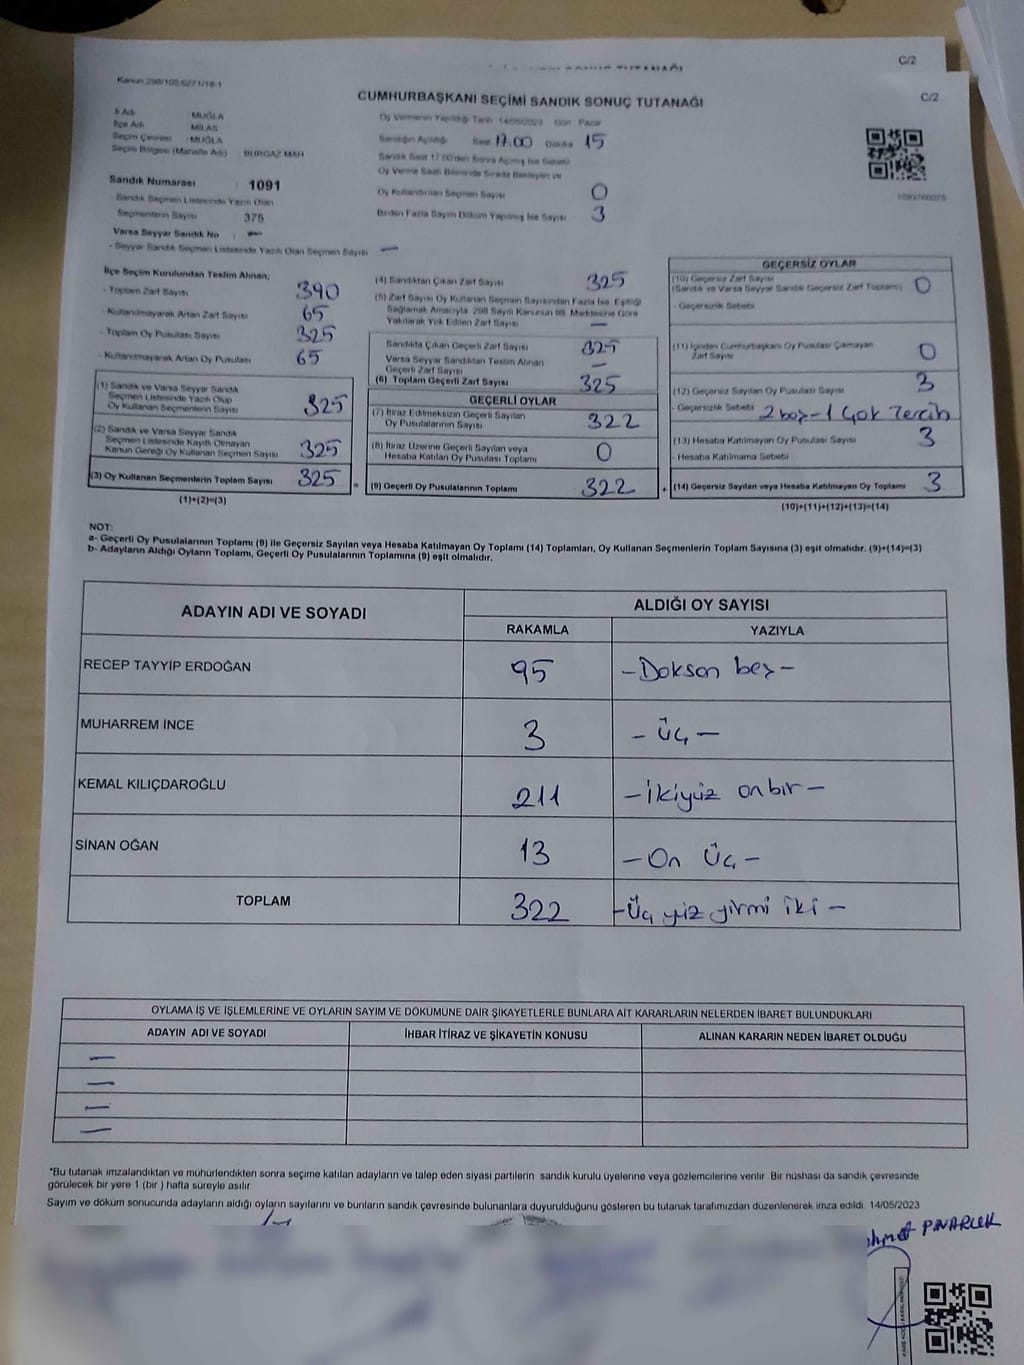 C/2
C/2
Kanun:298/105,6271/18-1
CUMHURBAŞKANI SEÇİMİ SANDIK SONUÇ TUTANAĞI
İl Adı : MUĞLA
İlçe Adı : MİLAS
Seçim Çevresi : MUĞLA
Seçim Bölgesi (Mahalle Adı) : BURGAZ MAH
Oy Vermenin Yapıldığı Tarih 14/05/2023 Gün : Pazar
Sandığın Açıldığı Saat 17.00 Dakika 15
Sandık Saat 17:00'den Sonra Açılmış İse Sebebi
Oy Verme Saati Bitiminde Sırada Bekleyen ve
Oy Kullandırılan Seçmen Sayısı 0
Birden Fazla Sayım Döküm Yapılmış İse Sayısı 3
Sandık Numarası : 1091
- Sandık Seçmen Listesinde Yazılı Olan
Seçmenlerin Sayısı 375
Varsa Seyyar Sandık No : —
- Seyyar Sandık Seçmen Listesinde Yazılı Olan Seçmen Sayısı —
İlçe Seçim Kurulundan Teslim Alınan;
- Toplam Zarf Sayısı 390
- Kullanılmayarak Artan Zarf Sayısı 65
- Toplam Oy Pusulası Sayısı 325
- Kullanılmayarak Artan Oy Pusulası 65
(1) Sandık ve Varsa Seyyar Sandık
Seçmen Listesinde Yazılı Olup
Oy Kullanan Seçmenlerin Sayısı 325
(2) Sandık ve Varsa Seyyar Sandık
Seçmen Listesinde Kayıtlı Olmayan
Kanun Gereği Oy Kullanan Seçmen Sayısı 325
(3) Oy Kullanan Seçmenlerin Toplam Sayısı 325
(1)+(2)=(3)
(4) Sandıktan Çıkan Zarf Sayısı 325
(5) Zarf Sayısı Oy Kullanan Seçmen Sayısından Fazla İse, Eşitliği
Sağlamak Amacıyla, 298 Sayılı Kanunun 98. Maddesine Göre
Yakılarak Yok Edilen Zarf Sayısı —
Sandıkta Çıkan Geçerli Zarf Sayısı 325
Varsa Seyyar Sandıktan Teslim Alınan
Geçerli Zarf Sayısı —
(6) Toplam Geçerli Zarf Sayısı 325
GEÇERLİ OYLAR
(7) İtiraz Edilmeksizin Geçerli Sayılan
Oy Pusulalarının Sayısı 322
(8) İtiraz Üzerine Geçerli Sayılan veya
Hesaba Katılan Oy Pusulası Toplamı 0
= (9) Geçerli Oy Pusulalarının Toplamı 322
GEÇERSİZ OYLAR
(10) Geçersiz Zarf Sayısı
(Sandık ve Varsa Seyyar Sandık Geçersiz Zarf Toplamı) 0
- Geçersizlik Sebebi
(11) İçinden Cumhurbaşkanı Oy Pusulası Çıkmayan
Zarf Sayısı 0
(12) Geçersiz Sayılan Oy Pusulası Sayısı 3
- Geçersizlik Sebebi 2 boş-1 Çok Tercih
(13) Hesaba Katılmayan Oy Pusulası Sayısı 3
- Hesaba Katılmama Sebebi
+ (14) Geçersiz Sayılan veya Hesaba Katılmayan Oy Toplamı 3
(10)+(11)+(12)+(13)=(14)
NOT:
a- Geçerli Oy Pusulalarının Toplamı (9) ile Geçersiz Sayılan veya Hesaba Katılmayan Oy Toplamı (14) Toplamları, Oy Kullanan Seçmenlerin Toplam Sayısına (3) eşit olmalıdır. (9)+(14)=(3)
b- Adayların Aldığı Oyların Toplamı, Geçerli Oy Pusulalarının Toplamına (9) eşit olmalıdır.
ADAYIN ADI VE SOYADI ALDIĞI OY SAYISI
RAKAMLA YAZIYLA
RECEP TAYYİP ERDOĞAN 95 -Doksan beş-
MUHARREM İNCE 3 - üç -
KEMAL KILIÇDAROĞLU 211 -ikiyüz onbir-
SİNAN OĞAN 13 -On üç-
TOPLAM 322 -Üç yüz yirmi iki-
OYLAMA İŞ VE İŞLEMLERİNE VE OYLARIN SAYIM VE DÖKÜMÜNE DAİR ŞİKAYETLERLE BUNLARA AİT KARARLARIN NELERDEN İBARET BULUNDUKLARI
ADAYIN ADI VE SOYADI İHBAR İTİRAZ VE ŞİKAYETİN KONUSU ALINAN KARARIN NEDEN İBARET OLDUĞU
—
—
—
—
*Bu tutanak imzalandıktan ve mühürlendikten sonra seçime katılan adayların ve talep eden siyasi partilerin sandık kurulu üyelerine veya gözlemcilerine verilir. Bir nüshası da sandık çevresinde
görülecek bir yere 1 (bir ) hafta süreyle asılır.
Sayım ve döküm sonucunda adayların aldığı oyların sayılarını ve bunların sandık çevresinde bulunanlara duyurulduğunu gösteren bu tutanak tarafımızdan düzenlenerek imza edildi. 14/05/2023
PINARLIK